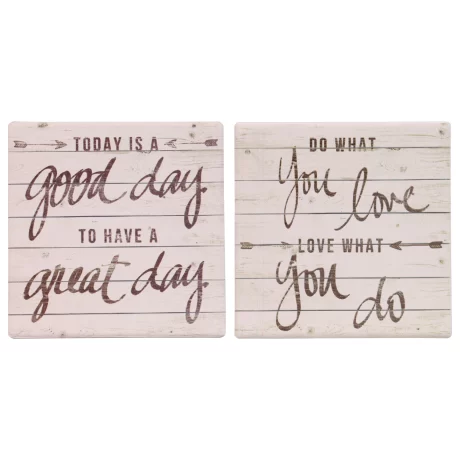 TODAY IS A
good day
TO HAVE A
great day.
DO WHAT
you love
LOVE WHAT
you do